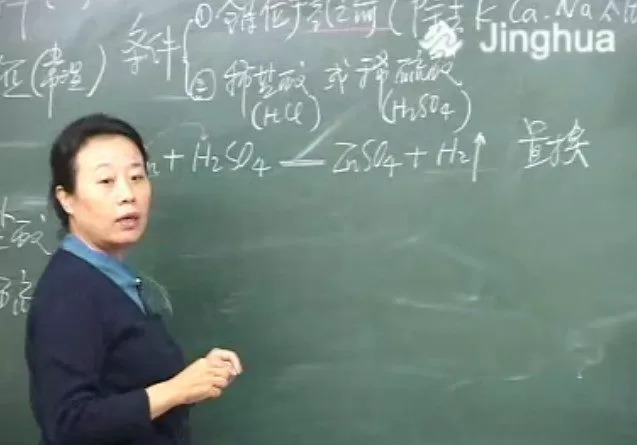 条件 ① 金属位于氢之前(除去K.Ca.Na
Jinghua
(常温)
② 稀盐酸 或 稀硫酸
(HCl) (H₂SO₄)
n + H₂SO₄ = ZnSO₄ + H₂↑ 置换
酸